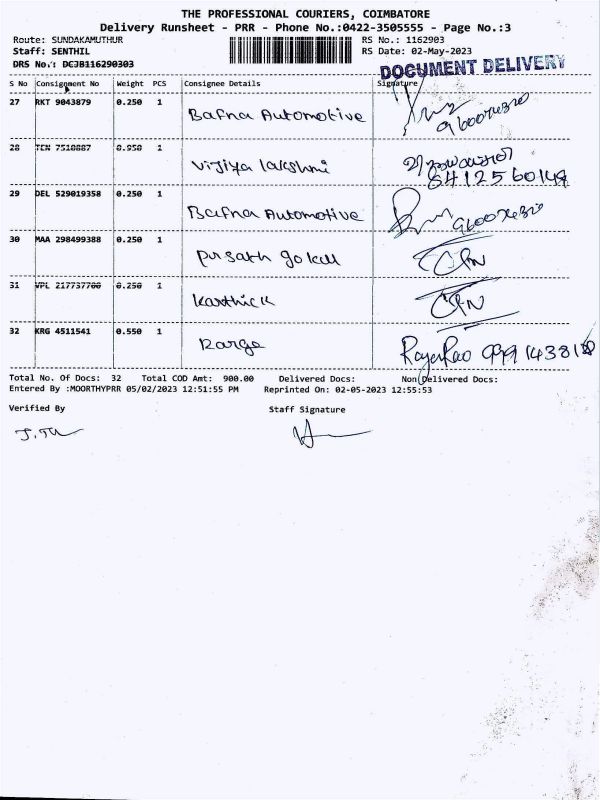 THE PROFESSIONAL COURIERS, COIMBATORE
Delivery Runsheet - PRR - Phone No.:0422-3505555 - Page No.:3
Route: SUNDAKAMUTHUR RS No.: 1162903
Staff: SENTHIL RS Date: 02-May-2023
DRS No.: DCJB116290303 DOCUMENT DELIVERY
S No Consignment No Weight PCS Consignee Details Signature
27 RKT 9043879 0.250 1 Bafna Automotive
28 TEN 7510887 0.950 1 Vijiya lakshmi
29 DEL 529019358 0.250 1 Bafna Automotive
30 MAA 298499388 0.250 1
31 VPL 0.250 1 Karthick
32 KRG 4511541 0.550 1
Total No. Of Docs: 32 Total COD Amt: 900.00 Delivered Docs: Non Delivered Docs:
Entered By :MOORTHYPRR 05/02/2023 12:51:55 PM Reprinted On: 02-05-2023 12:55:53
Verified By Staff Signature